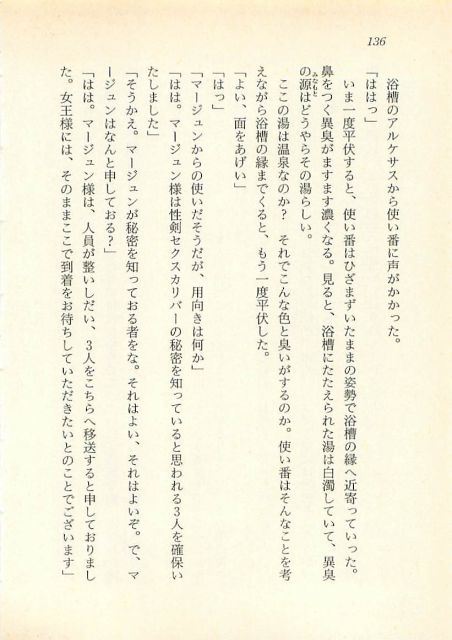 136
浴槽のアルケサスから使い番に声がかかった。
「ははっ」
いま一度平伏すると、使い番はひざまずいたままの姿勢で浴槽の縁へ近寄っていった。
鼻をつく異臭がますます濃くなる。見ると、浴槽にたたえられた湯は白濁していて、異臭
の源はどうやらその湯らしい。
みなもと
ここの湯は温泉なのか？　それでこんな色と臭いがするのか。使い番はそんなことを考
えながら浴槽の縁までくると、もう一度平伏した。
「よい、面をあげい」
「はっ」
「マージュンからの使いだそうだが、用向きは何か」
「はは。マージュン様は性剣セクスカリバーの秘密を知っていると思われる３人を確保い
たしました」
「そうかえ。マージュンが秘密を知っておる者をな。それはよい、それはよいぞ。で、マ
ージュンはなんと申しておる？」
「はは。マージュン様は、人員が整いしだい、３人をこちらへ移送すると申しておりまし
た。女王様には、そのままここで到着をお待ちしていただきたいとのことでございます」